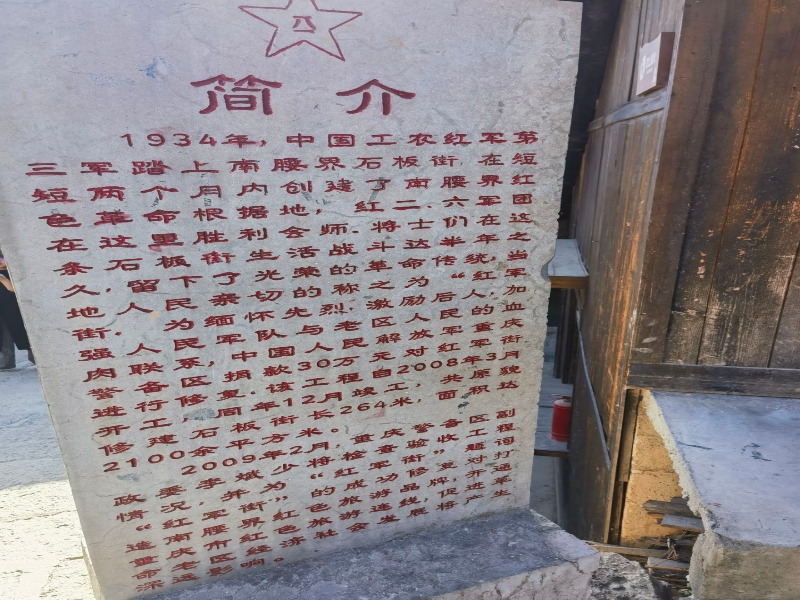 八
简介
1934年，中国工农红军第
三军踏上南腰界石板街，在短
短两个月内创建了南腰界红
色革命根据地，红二、六军团
在这里胜利会师。将士们在这
条石板街生活战斗达半年之
久，留下了光荣的革命传统，当
地人民亲切的称之为“红军
街”。为缅怀先烈，激励后人，加
强人民军队与老区人民的血
肉联系，中国人民解放军重庆
警备区捐款30万元对红军街
进行修复。该工程自2008年3月
开工，同年12月竣工，共
修建石板街长264米，面积达
2100余平方米。
2009年2月，重庆警备区副
政委李斌少将检查验收工程
情况，并为“红军街”修复题词